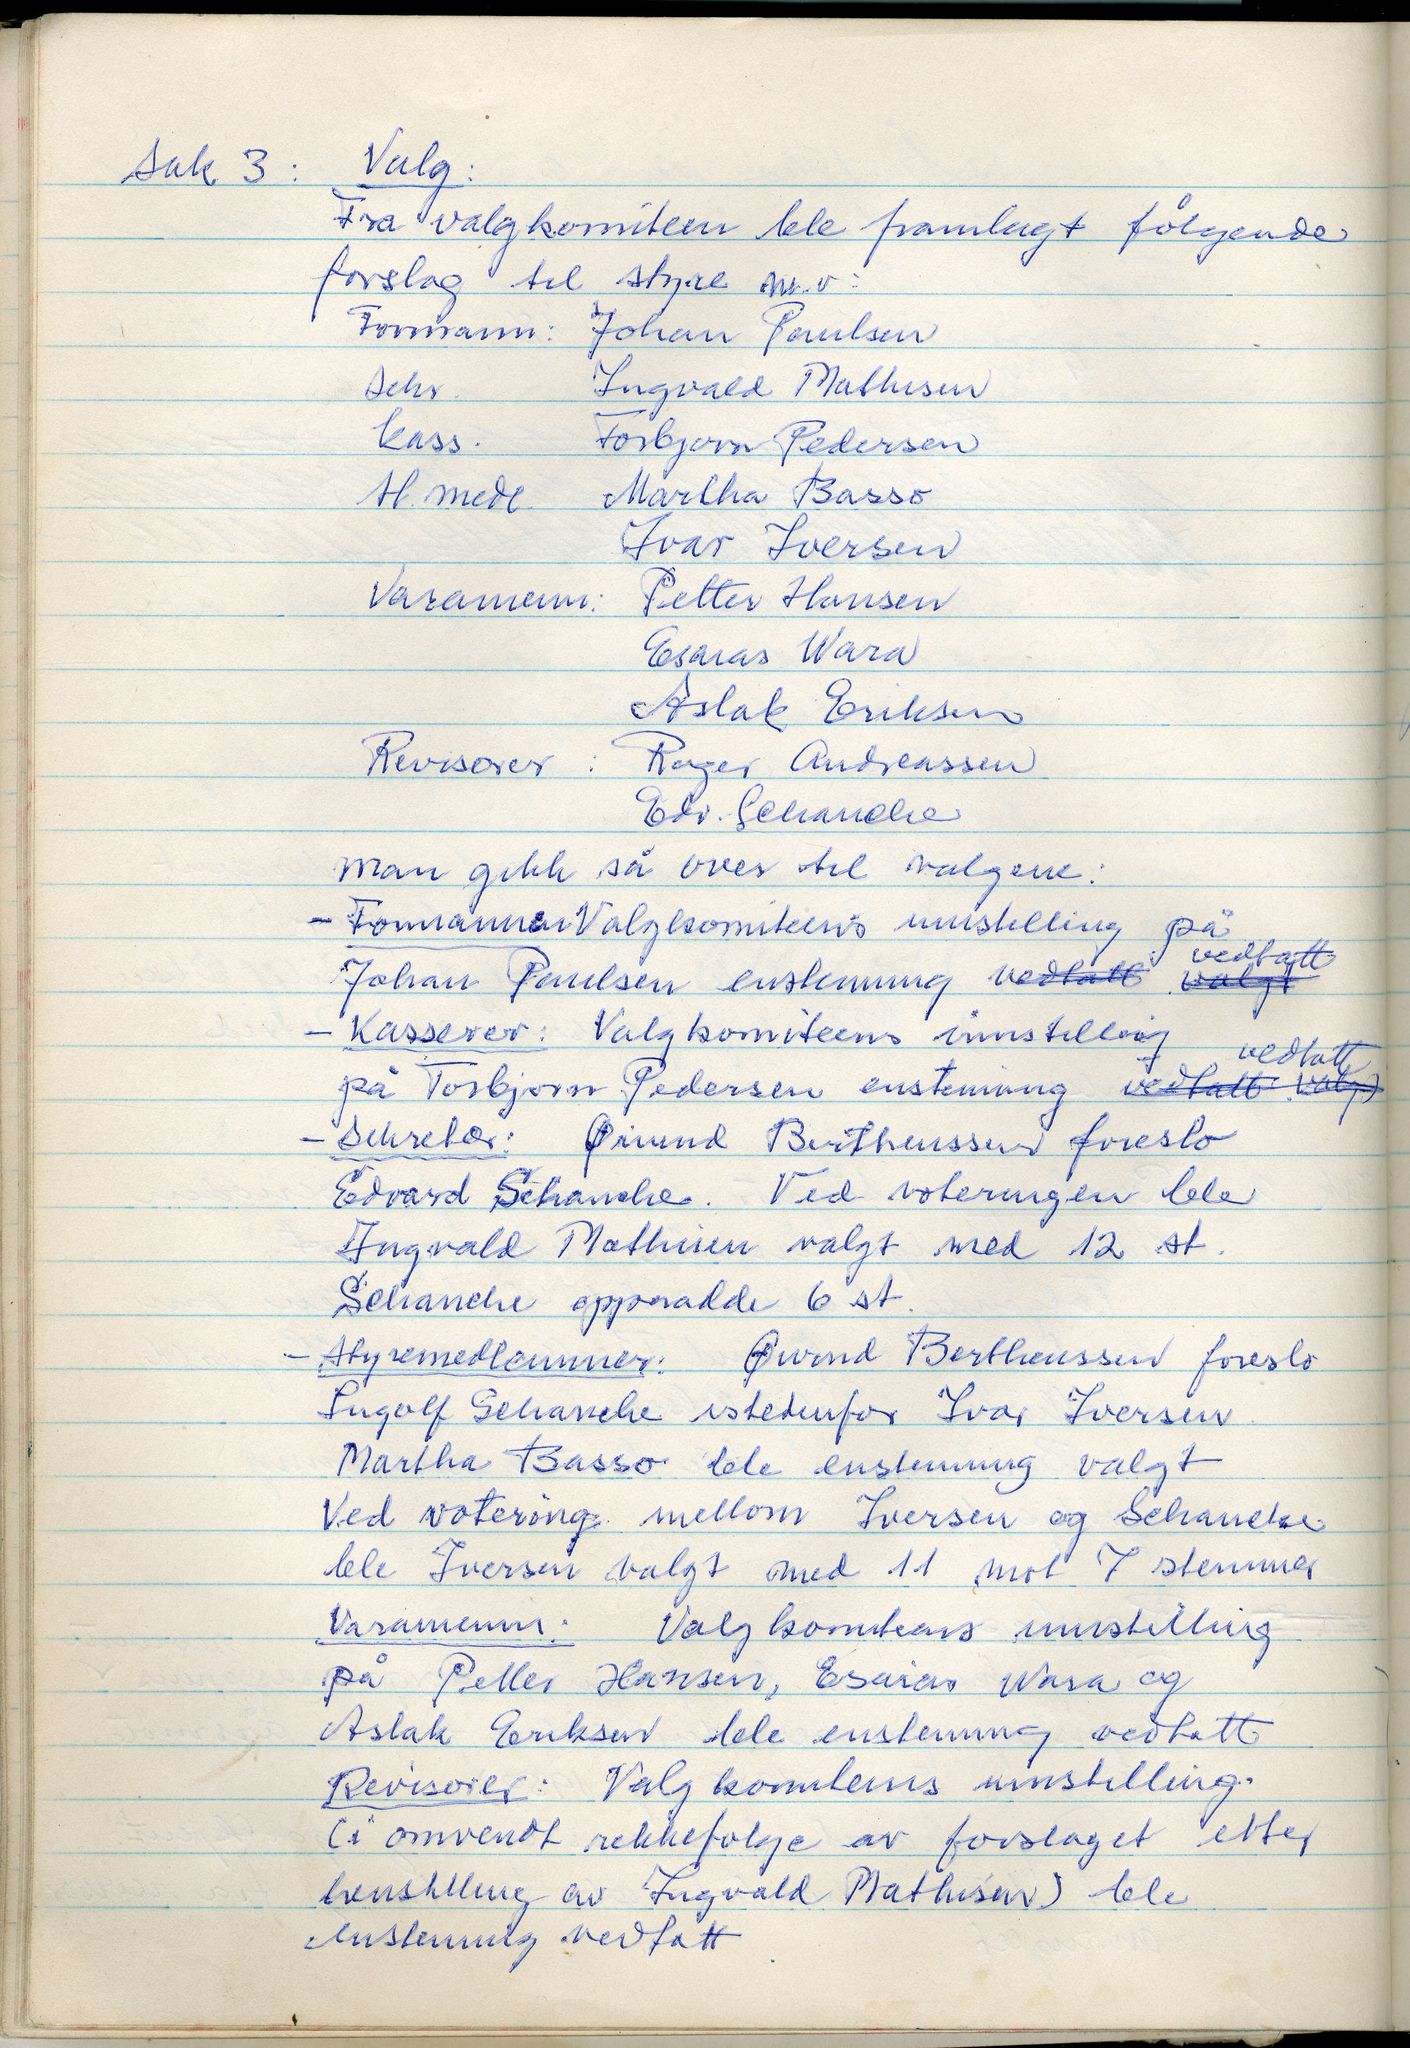 Sak 3: Valg:
Fra valgkomiteen ble framlagt følgende
forslag til styre m.v:
Formann: Johan Paulsen
Sekr. Ingvald Mathisen
Kass. Torbjørn Pedersen
St. medl. Martha Basso
Ivar Iversen
Varamenn: Petter Hansen
Esaias Wara
Aslak Eriksen
Revisorer: Roger Andreassen
Edv. Schanche
Man gikk så over til valgene:
- Formannen Valgkomiteens innstilling på
Johan Paulsen enstemmig vedtatt valgt vedtatt
- Kasserer: Valgkomiteens innstilling
på Torbjørn Pedersen enstemmig vedtatt valgt vedtatt
- Sekretær: Øivind Bertheussen foreslo
Edvard Schanche. Ved voteringen ble
Ingvald Mathisen valgt med 12 st.
Schanche oppnådde 6 st.
- Styremedlemmer: Øivind Bertheussen foreslo
Ingolf Schanche istedenfor Ivar Iversen.
Martha Basso ble enstemmig valgt
Ved votering mellom Iversen og Schanche
ble Iversen valgt med 11 mot 7 stemmer
Varamenn: Valgkomiteens innstilling
på Petter Hansen, Esaias Wara og
Aslak Eriksen ble enstemmig vedtatt
Revisorer: Valgkomiteens innstilling
(i omvendt rekkefølge av forslaget etter
henstilling av Ingvald Mathisen) ble
enstemmig vedtatt.